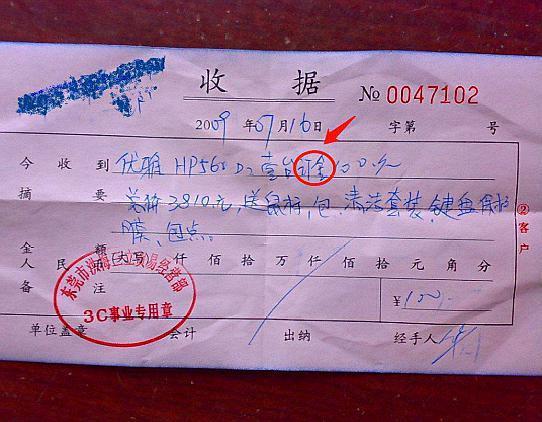 收 据
№ 0047102
2009 年 07 月 16 日 字第 号
今 收 到 优雅 HP560 D2 壹台 订金 100元
摘 要 总价3810元,送鼠标,包,清洁套装,键盘
膜,包点。
金 额
人 民 币 (大写) 仟 佰 拾 万 仟 佰 拾 元 角 分
备 注 ¥100.-
单位盖章 会计 出纳 经手人
②客户
东莞市 贸易经营部
3C事业专用章